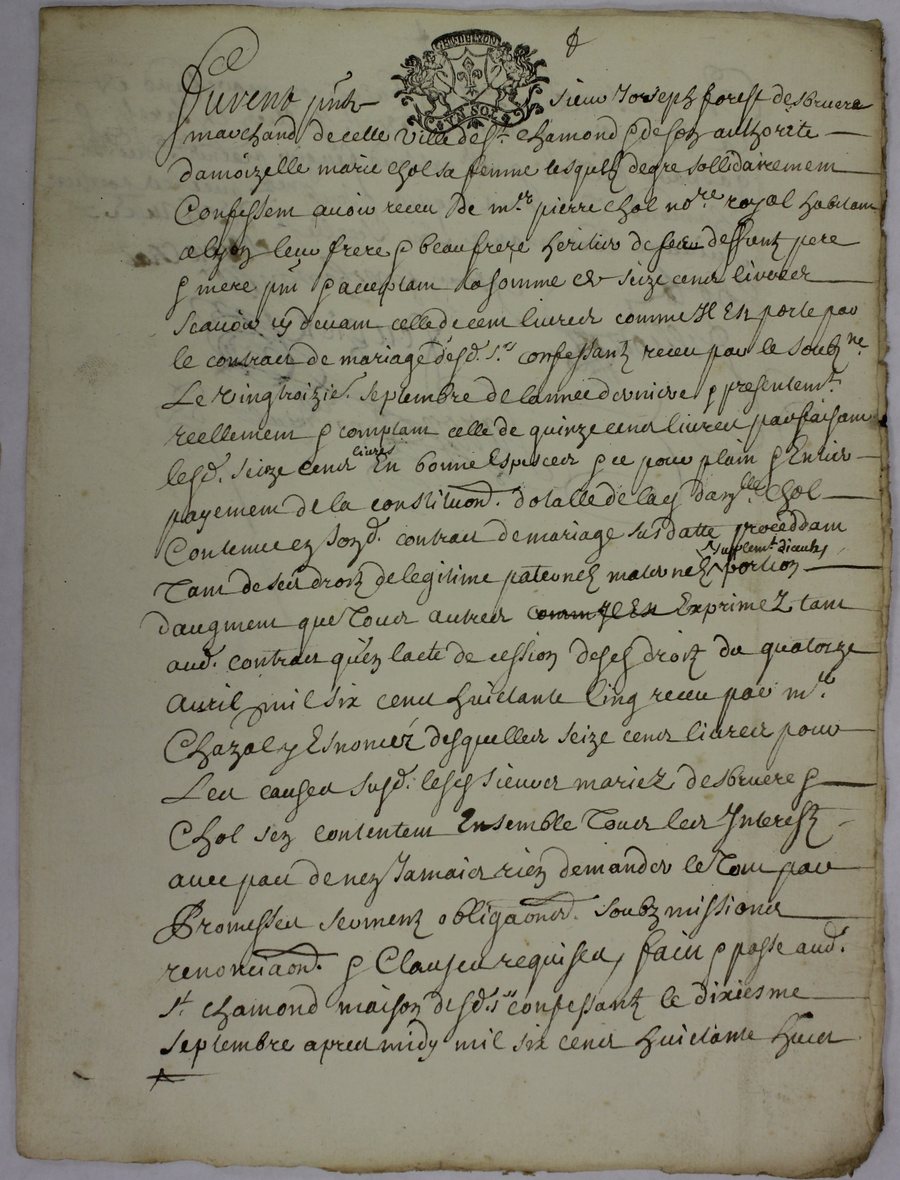 GEN DE LYON
SIX SOLS
furent p̃nts sieur Joseph forest desbruere
marchand de cette ville de St. chamond & de son authorité
damoizelle marie chol sa femme lesquels de gre sollidairement
Confessent avoir receu de mr. pierre chol nore royal habitant
a lyon leur frere & beaufrere heritier de feeu deffunt pere
& mere p̃nt & acceptant la somme de seize cens livres
scavoir cy devant celle de cent livres comme Il En porte par
le contract de mariage desd. srs confessants receu par le soubz ne.
Le vingtroizie. septembre de lannee derniere & presentemt.
reellement & comptant celle de quinze cens livres parfaisant
lesd. seize cens livres En bonne Espesces & ce pour plain & Entier
payement de la constituõn. dotalle de lad damlle. chol
Contenue en sond. contract de mariage sus datte proceddant
Tant de ses droits de legitime paternel maternel supplemt. diceulx portion
daugment que Tous autres comm Il En Exprimez tant
aud. contract quen lacte de cession desesd droits du quatorze
Auril mil six cens huictante cinq receu par mre.
Chazal y Esnomez desquelles seize cens livres pour
Les causes susd. lesd sieurs mariez desbruere &
Chol sen contentent Ensemble Tous les Interests
avec pact de nen Jamais rien demander le Tout par
Promesses serments obligaõns. soubzmissions
renonciaõns. & Clauses requises, fait & passe aud.
St. chamond maison desd. srs confessants le dixiesme
septembre apres midy mil six cens huictante huict